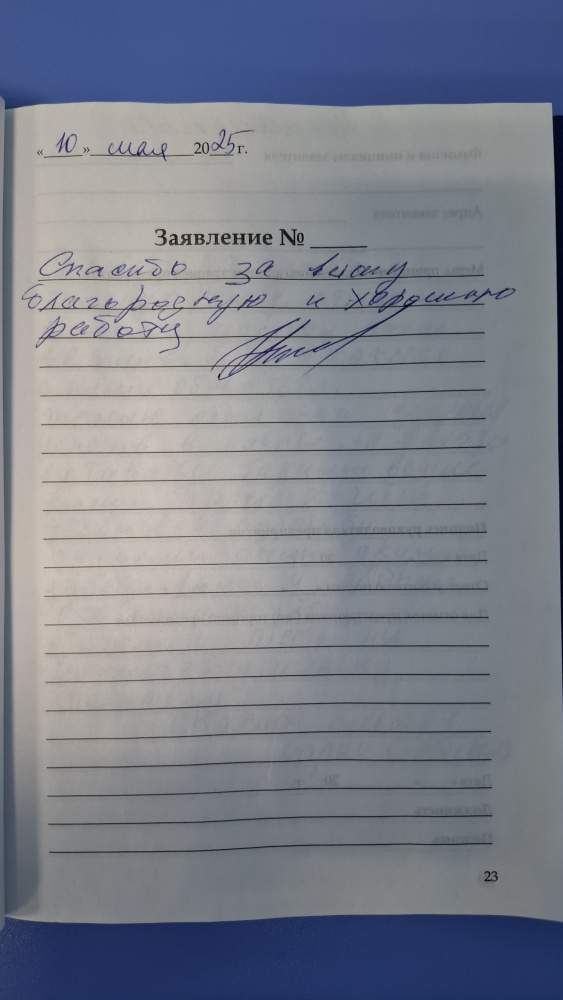 «10» мая 2025 г.
Заявление №
Спасибо за вашу
благородную и хорошую
работу
23